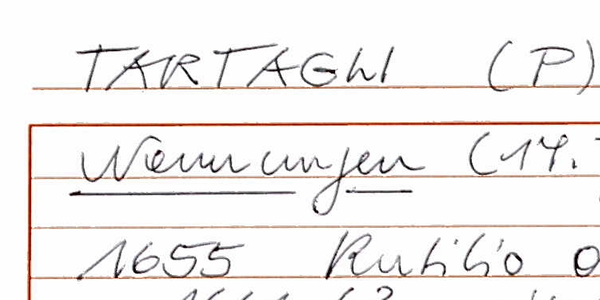 TARTAGLI (P)
Nennungen (17.
1655 Rutilio